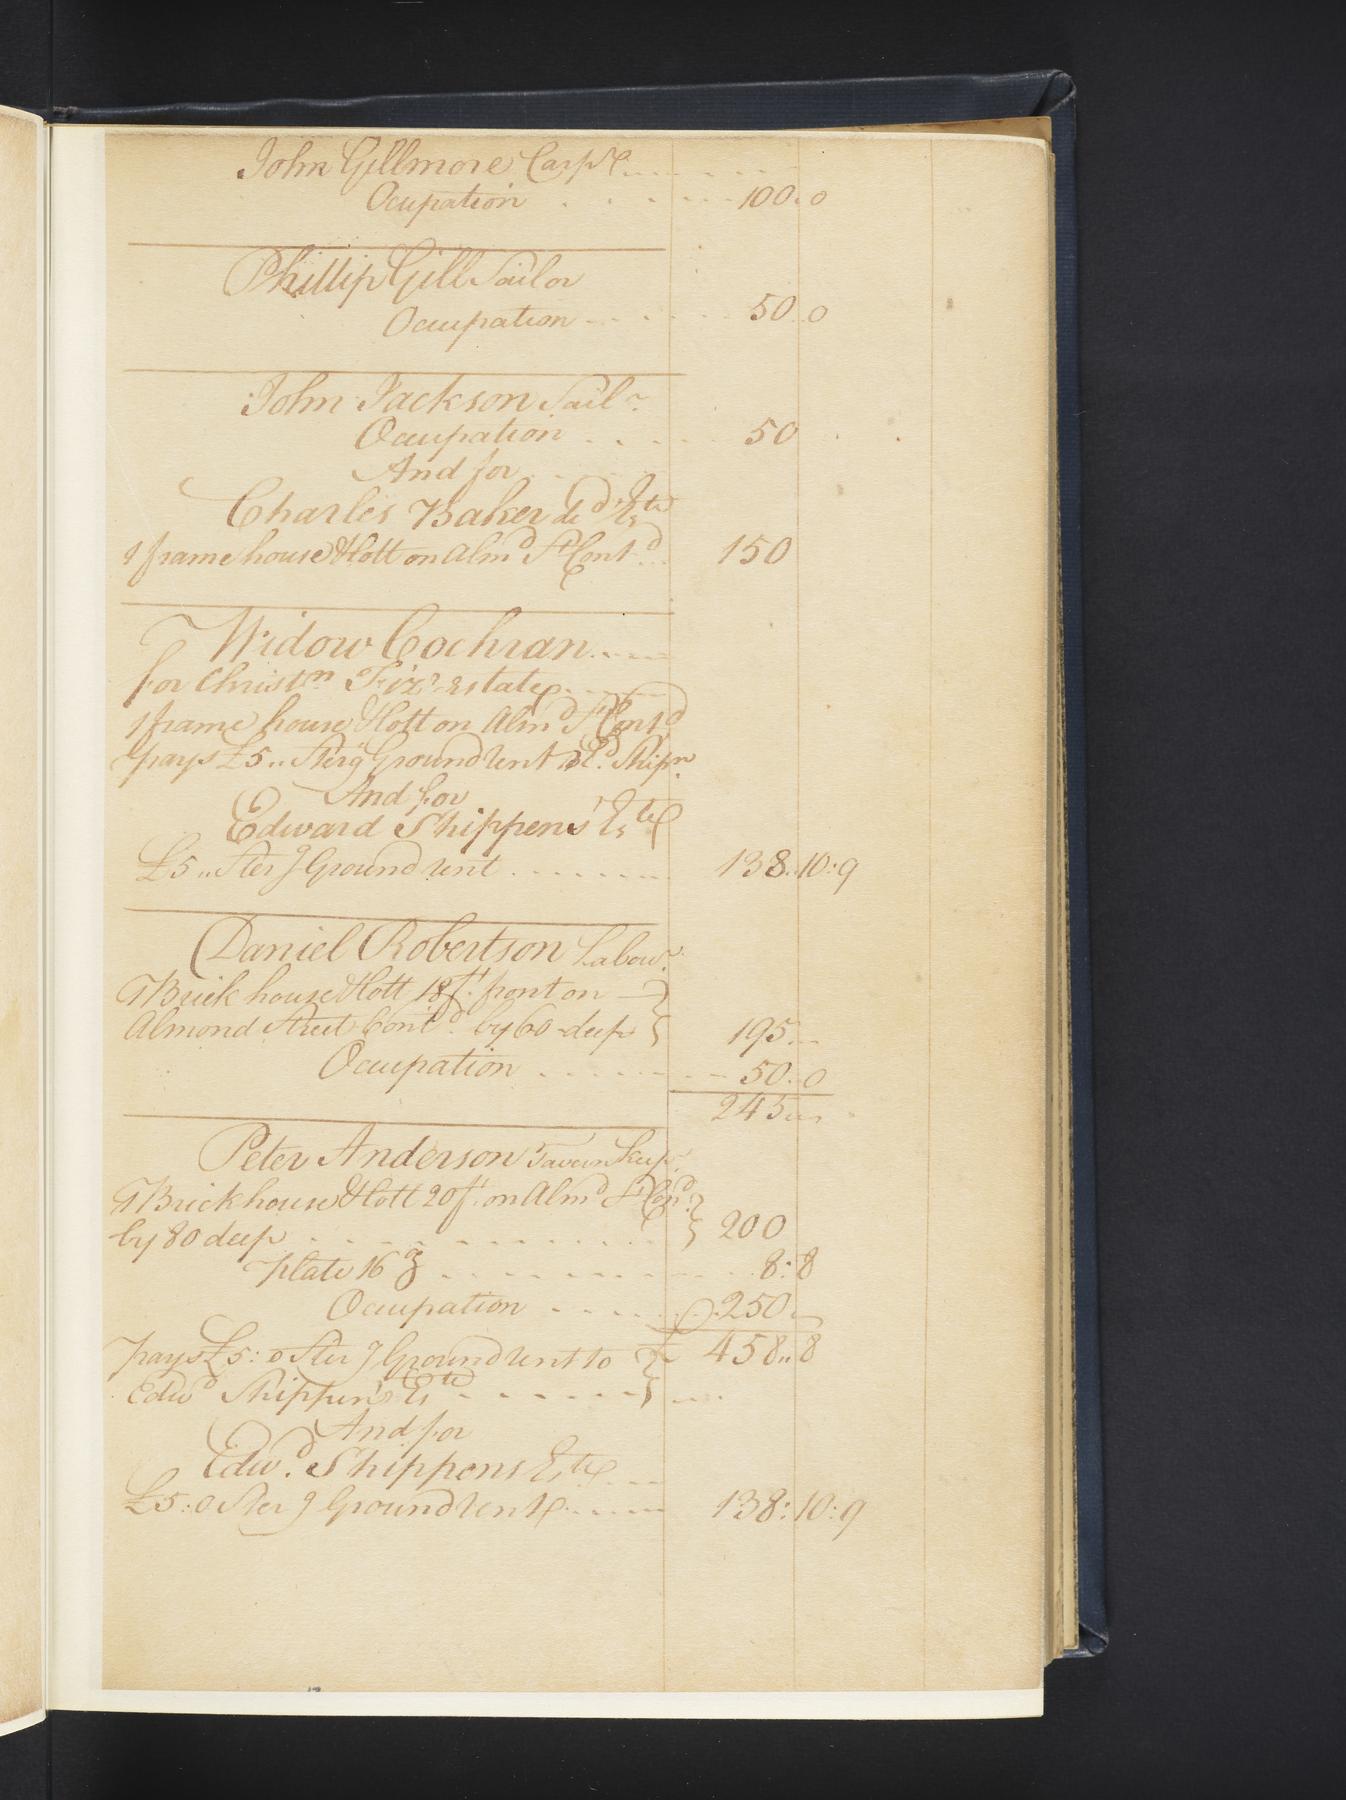 John Gillmore Carpr
Ocupation . . . . . 100. 0
Phillip Gill Sailor
Occupation . . . . 50. 0
John Jackson Sailr
Occupation . . . . 50
And for
Charles Baker decd Este
1 frame house & lott on Almd St Contd 150
Widow Cochran
for Christn Estate
1 frame house & lott on Almd St Contd
pays £5.. Sterg Ground rent Ed Shipn
And for
Edward Shippens Este
£5.. Sterg Ground rent . . . . . . 138..10:9
Daniel Robertson Labour
A Brick house & lott 18 ft front on
Almond Street Contd by 60 deep 195..
Occupation . . . . . 50. 0
245
Peter Anderson Tavern Keepr
A Brick house & lott 20 ft on Almd St Contd
by 80 deep . . . . . . . . 200
Plate 16 oz . . . . . . 8:8
Occupation . . . . 250
pays £5:0 Sterg Ground rent to 458..8
Edwd Shippens Este . . . . .
And for
Edwd Shippens Este
£5:0 Sterg Ground rent . . . . 138:10:9